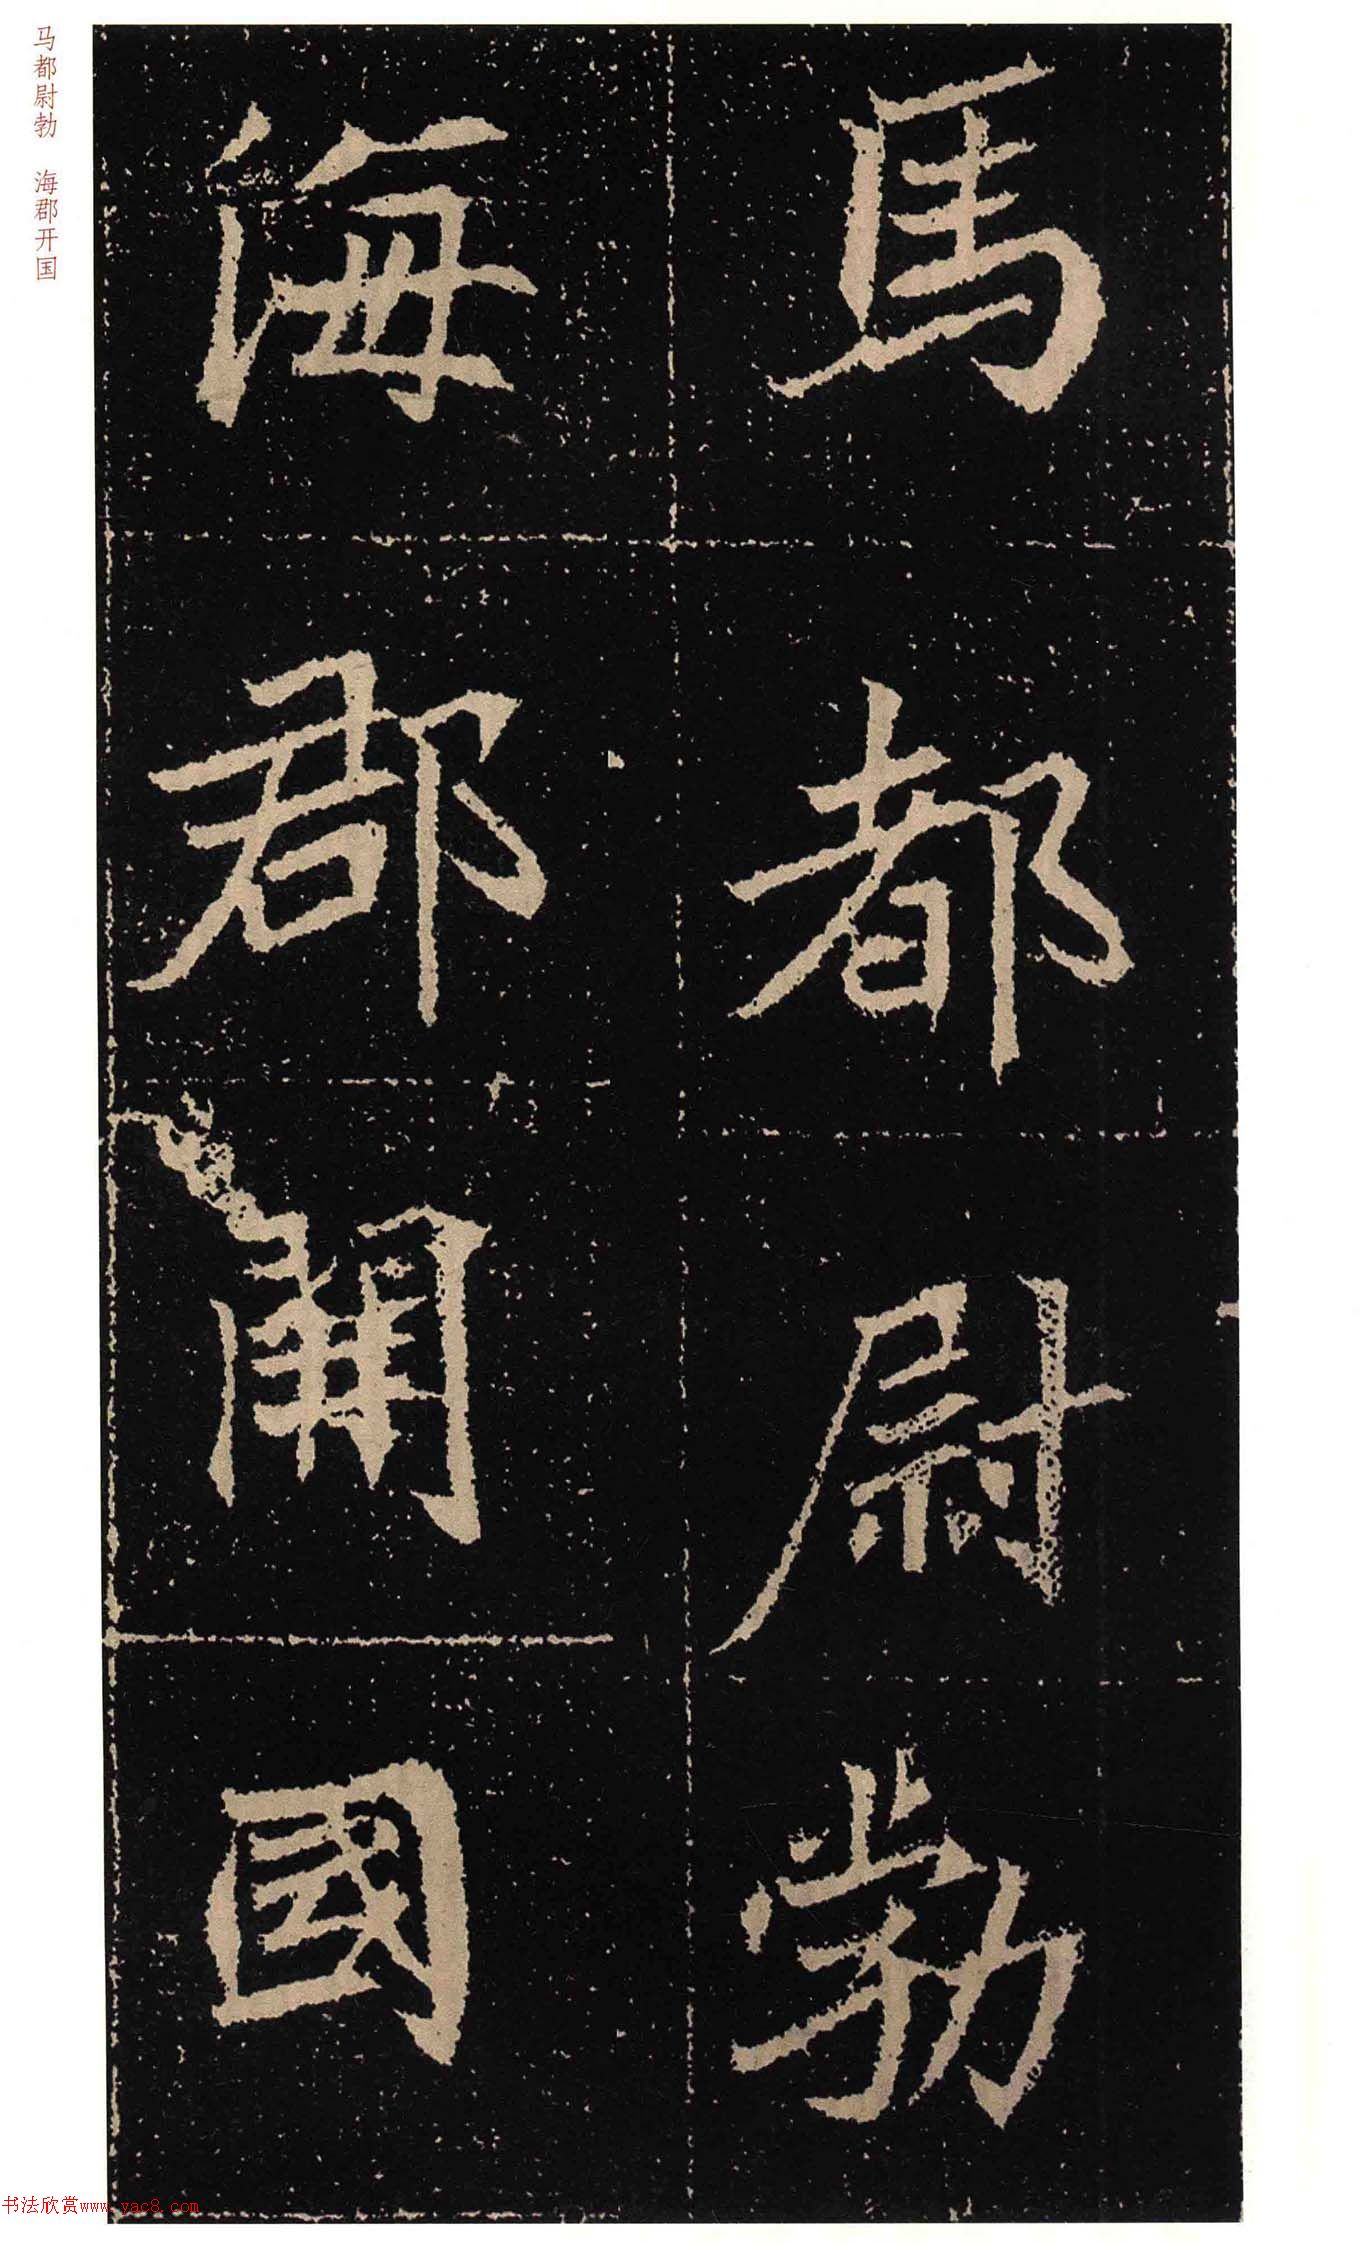 马都尉勃 海郡开国
馬都尉勃
海郡開國
书法欣赏www.yac8.com